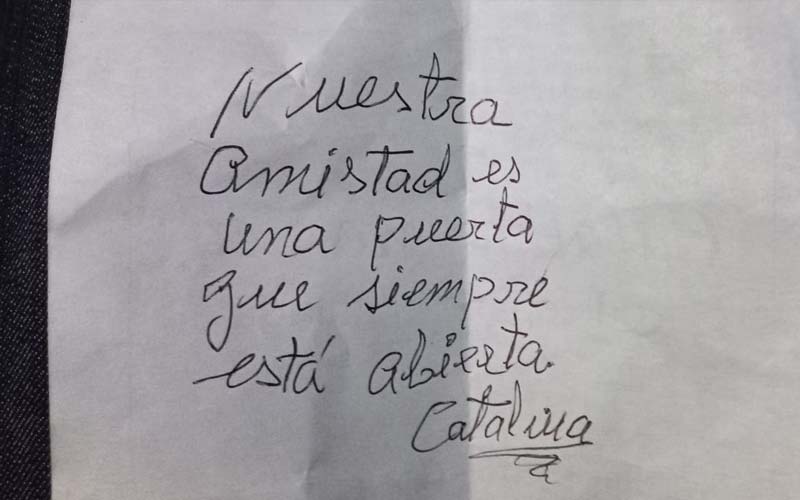 Nuestra
Amistad es
una puerta
que siempre
está abierta.
Catalina